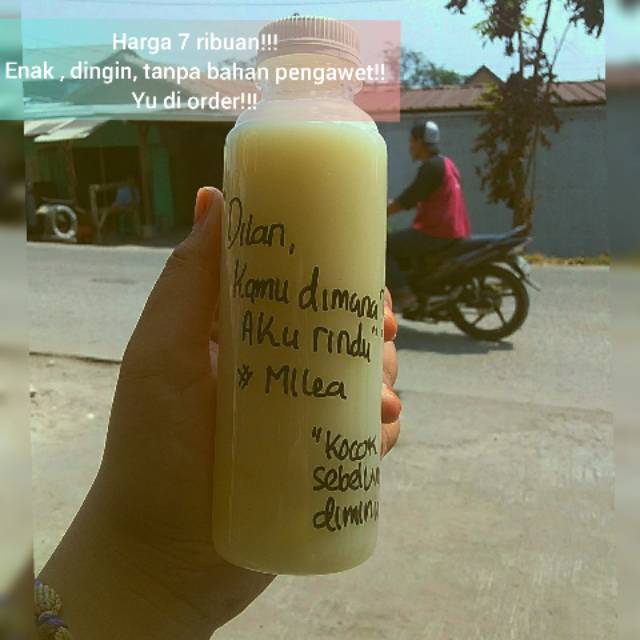 Harga 7 ribuan!!!
Enak , dingin, tanpa bahan pengawet!!
Yu di order!!!
"Dilan,
Kamu dimana?
Aku rindu"
* Milea
"Kocok